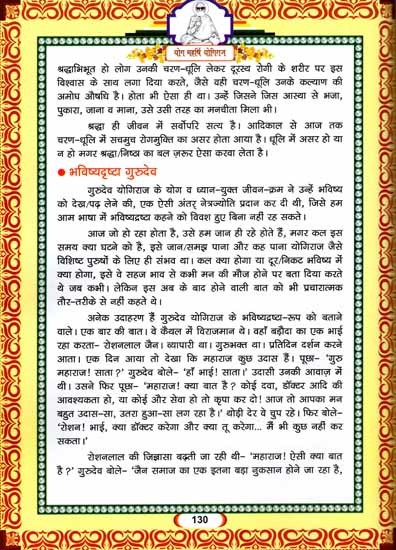 योग महर्षि योगिराज
श्रद्धाभिभूत हो लोग उनकी चरण-धूलि लेकर दूरस्थ रोगी के शरीर पर इस
विश्वास के साथ लगा दिया करते, जैसे वही चरण-धूलि उनके कल्याण की
अमोघ औषधि है। होता भी ऐसा ही था। उन्हें जिसने जिस आस्था से भजा,
पुकारा, जाना व माना, उसे उसी तरह का मनचीता मिला भी।
श्रद्धा ही जीवन में सर्वोपरि सत्य है। आदिकाल से आज तक
चरण-धूलि में सचमुच रोगमुक्ति का असर होता आया है। धूलि में असर हो या
न हो मगर श्रद्धा/निष्ठा का बल ज़रूर ऐसा करवा लेता है।
● भविष्यदृष्टा गुरुदेव
गुरुदेव योगिराज के योग व ध्यान-युक्त जीवन-क्रम ने उन्हें भविष्य
को देख/पढ़ लेने की, एक ऐसी अंतर् नेत्रज्योति प्रदान कर दी थी, जिसे हम
आम भाषा में भविष्यदृष्टा कहने को विवश हुए बिना नहीं रह सकते।
आज जो हो रहा होता है, उसे हम जान ही रहे होते हैं, मगर कल इस
समय क्या घटने को है, इसे जान/समझ पाना और कह पाना योगिराज जैसे
विशिष्ट पुरुषों के लिए ही संभव था। कल क्या होगा या दूर/निकट भविष्य में
क्या होगा, इसे वे सहज भाव से कभी मन की मौज होने पर बता दिया करते
थे जब कभी। लेकिन इस अब के बाद होने वाली बात को भी प्रचारात्मक
तौर-तरीके से नहीं कहते थे।
अनेक उदाहरण हैं गुरुदेव योगिराज के भविष्यदृष्टा-रूप को बताने
वाले। एक बार की बात। वे कैथल में विराजमान थे। वहाँ बड़ौदा का एक भाई
रहा करता- रोशनलाल जैन। व्यापारी था। गुरुभक्त था। प्रतिदिन दर्शन करने
आता। एक दिन आया तो देखा कि महाराज कुछ उदास हैं। पूछा- 'गुरु
महाराज! साता ?' गुरुदेव बोले- 'हाँ भाई! साता।' उदासी उनकी आवाज़ में
थी। उसने फिर पूछा- 'महाराज! क्या बात है ? कोई दवा, डॉक्टर आदि की
आवश्यकता हो, या कोई और सेवा हो तो कृपा कर दो! आज तो आपका मन
बहुत उदास-सा, उतरा हुआ-सा लग रहा है।' थोड़ी देर वे चुप रहे। फिर बोले-
'रोशन! भाई, क्या डॉक्टर करेगा और क्या तू करेगा... मैं भी कुछ नहीं कर
सकता।'
रोशनलाल की जिज्ञासा बढ़ती जा रही थी- 'महाराज! ऐसी क्या बात
है ?' गुरुदेव बोले- 'जैन समाज का एक इतना बड़ा नुकसान होने जा रहा है,
130